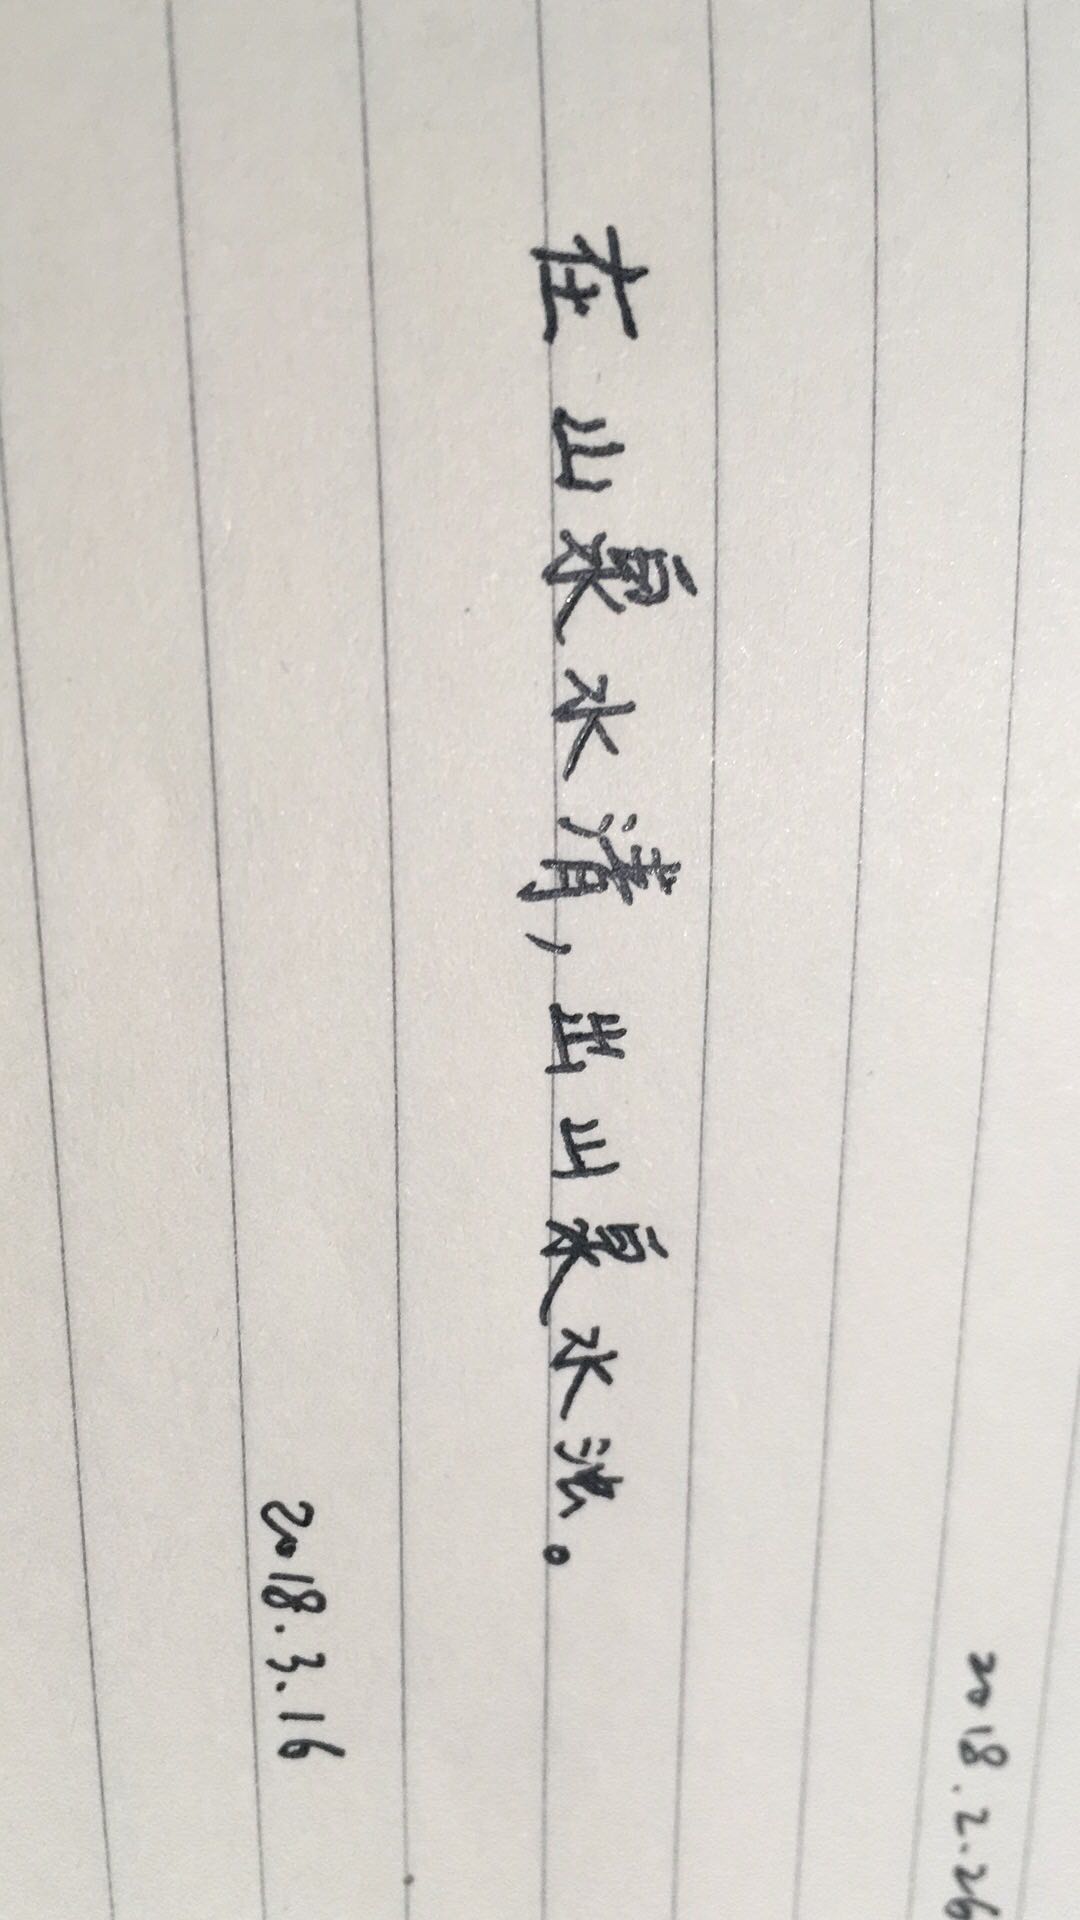 2018.2.26
在山泉水清，出山泉水浊。
2018.3.16